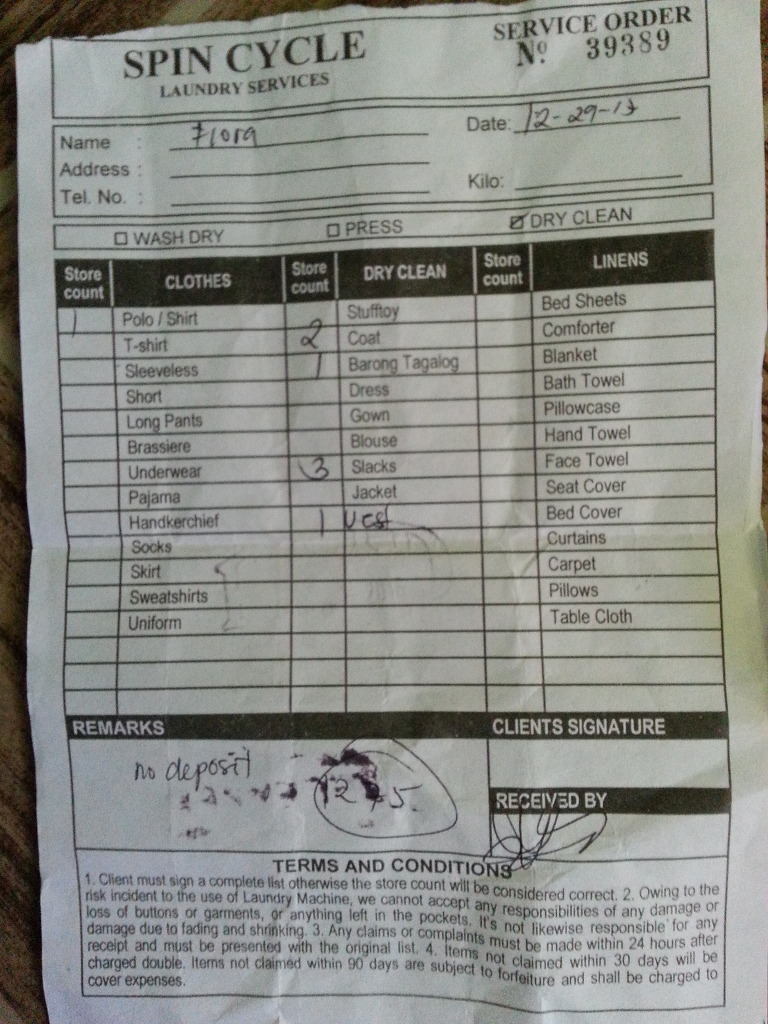 SPIN CYCLE
LAUNDRY SERVICES
SERVICE ORDER
Nº 39389
Name : Flora
Date: 12-29-13
Address :
Tel. No. :
Kilo:
WASH DRY PRESS DRY CLEAN
Store count CLOTHES Store count DRY CLEAN Store count LINENS
1 Polo / Shirt Stufftoy Bed Sheets
T-shirt 2 Coat Comforter
Sleeveless 1 Barong Tagalog Blanket
Short Dress Bath Towel
Long Pants Gown Pillowcase
Brassiere Blouse Hand Towel
Underwear 3 Slacks Face Towel
Pajama Jacket Seat Cover
Handkerchief 1 Vest Bed Cover
Socks Curtains
Skirt Carpet
Sweatshirts Pillows
Uniform Table Cloth
REMARKS CLIENTS SIGNATURE
no deposit
RECEIVED BY
TERMS AND CONDITIONS
1. Client must sign a complete list otherwise the store count will be considered correct. 2. Owing to the
risk incident to the use of Laundry Machine, we cannot accept any responsibilities of any damage or
loss of buttons or garments, or anything left in the pockets. It's not likewise responsible for any
damage due to fading and shrinking. 3. Any claims or complaints must be made within 24 hours after
receipt and must be presented with the original list. 4. Items not claimed within 30 days will be
charged double. Items not claimed within 90 days are subject to forfeiture and shall be charged to
cover expenses.